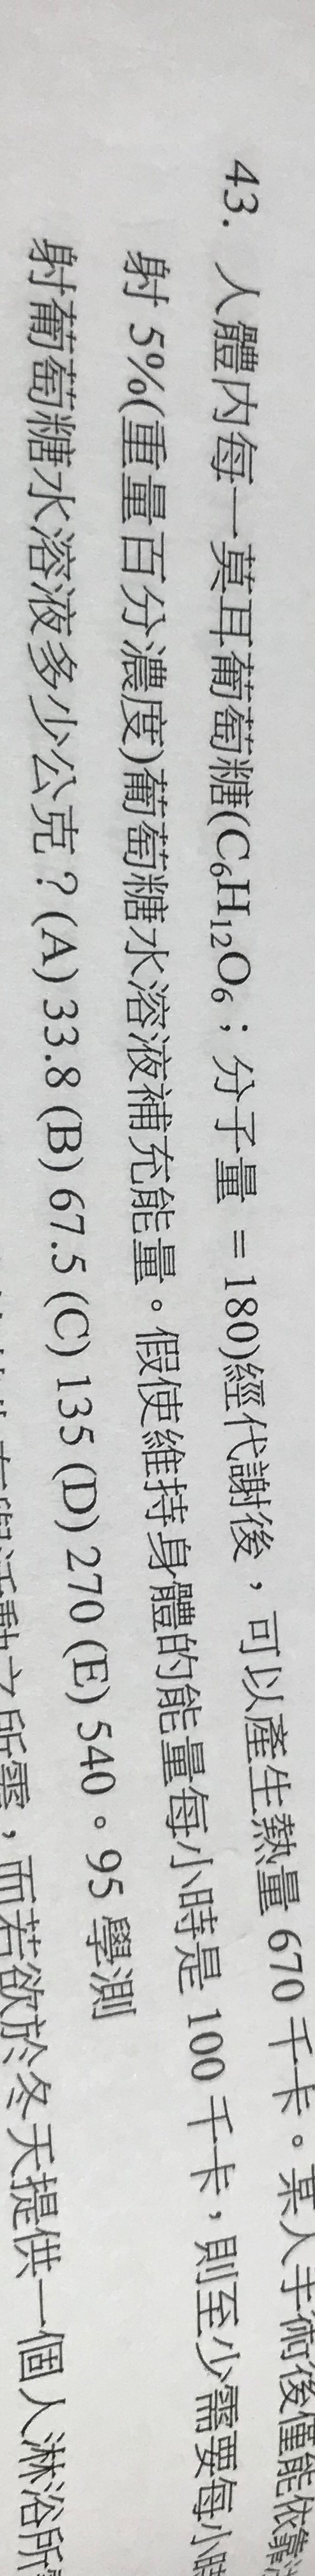 43. 人體內每一莫耳葡萄糖(C₆H₁₂O₆；分子量 = 180)經代謝後，可以產生熱量 670 千卡。某人手術後僅能依靠
射 5%(重量百分濃度)葡萄糖水溶液補充能量。假使維持身體的能量每小時是 100 千卡，則至少需要每小時
射葡萄糖水溶液多少公克？(A) 33.8 (B) 67.5 (C) 135 (D) 270 (E) 540。95 學測
之所需，而若欲於冬天提供一個人淋浴所